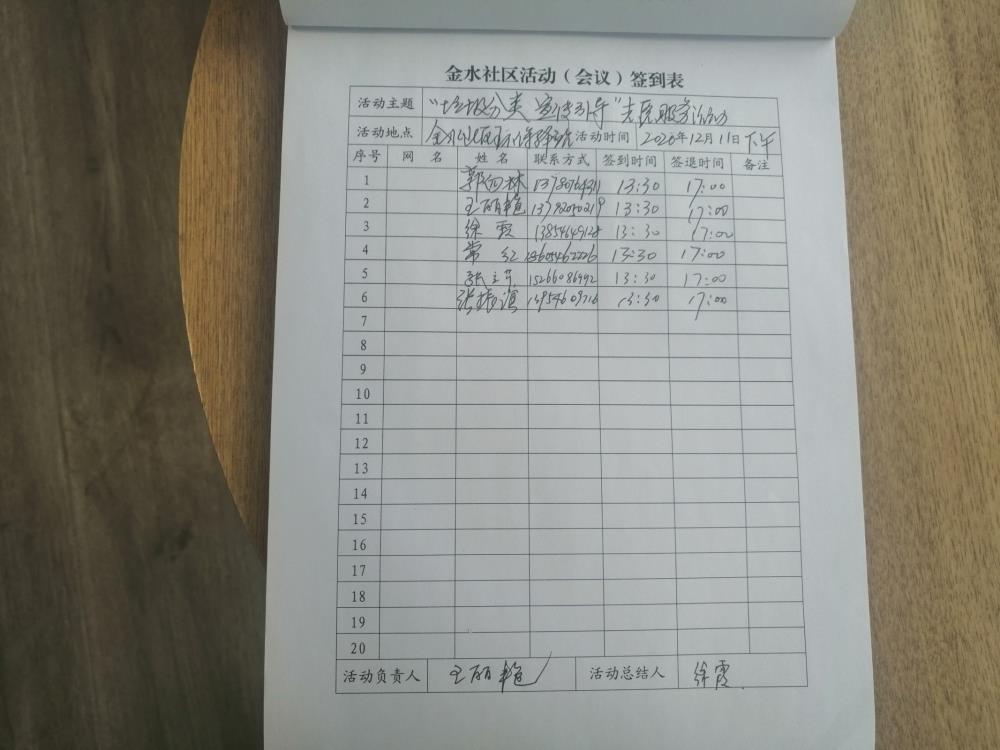 金水社区活动（会议）签到表
活动主题 "垃圾分类 宣传引导"志愿服务活动
活动地点 金水社区 活动时间 2020年12月11日下午
序号 网 名 姓 名 联系方式 签到时间 签退时间 备注
1 13:30 17:00
2 王丽艳 13:30 17:00
3 徐霞 13854649128 13:30 17:00
4 常红 13:30 17:00
5 15266086992 13:30 17:00
6 13954609716 13:30 17:00
7
8
9
10
11
12
13
14
15
16
17
18
19
20
活动负责人 王丽艳 活动总结人 徐霞